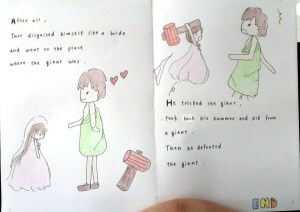 After all,
Thor disguised himself like a bride
and went to the place
where the giant was.
He tricked the giant,
took back his hammer and hid from
a giant.
Then he defeated
the giant.
END